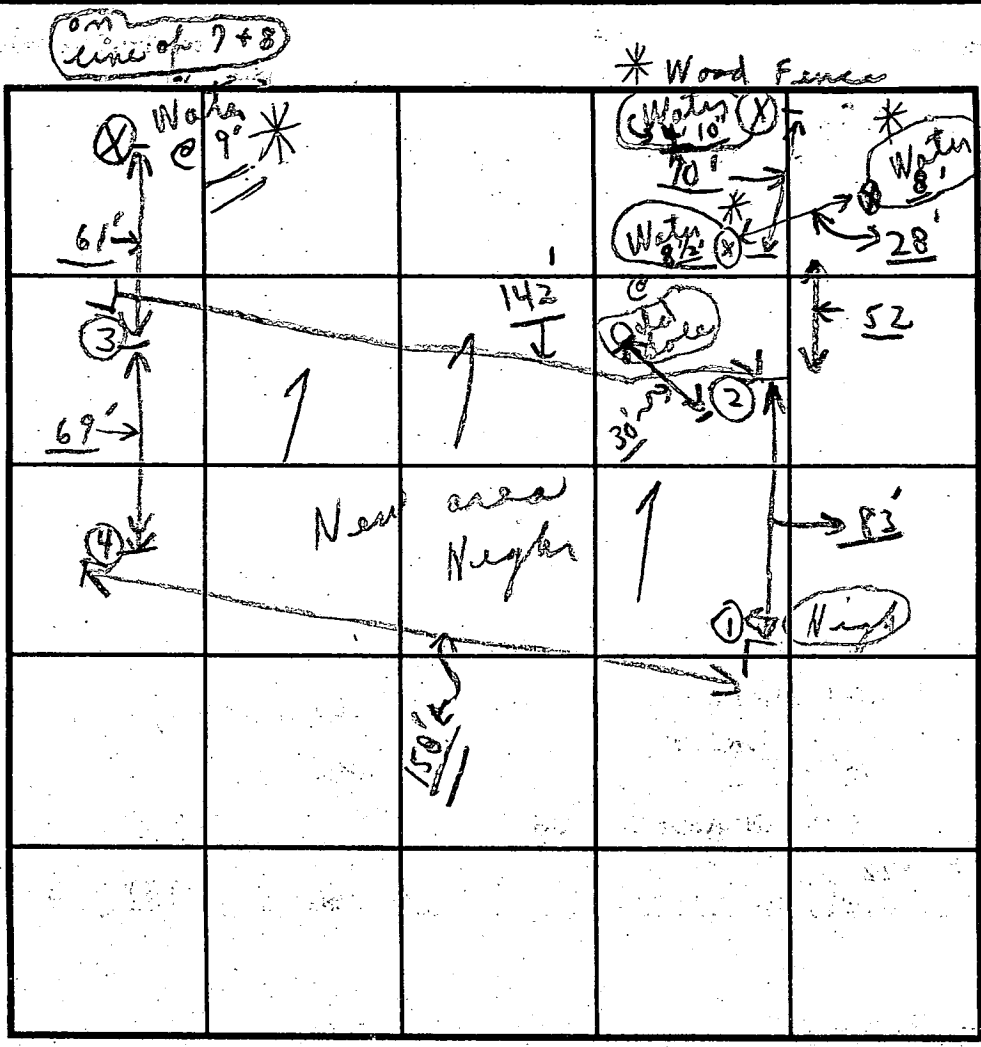 on
line of 7+8
* Wood Fence
Water
@ 9' *
Water
10'
70'
*
Water
8'
*
Water
8 1/2'
28'
61'
142'
@
Old
hole
52
3
2
69'
30'
New area
High
83'
4
1
High
150'